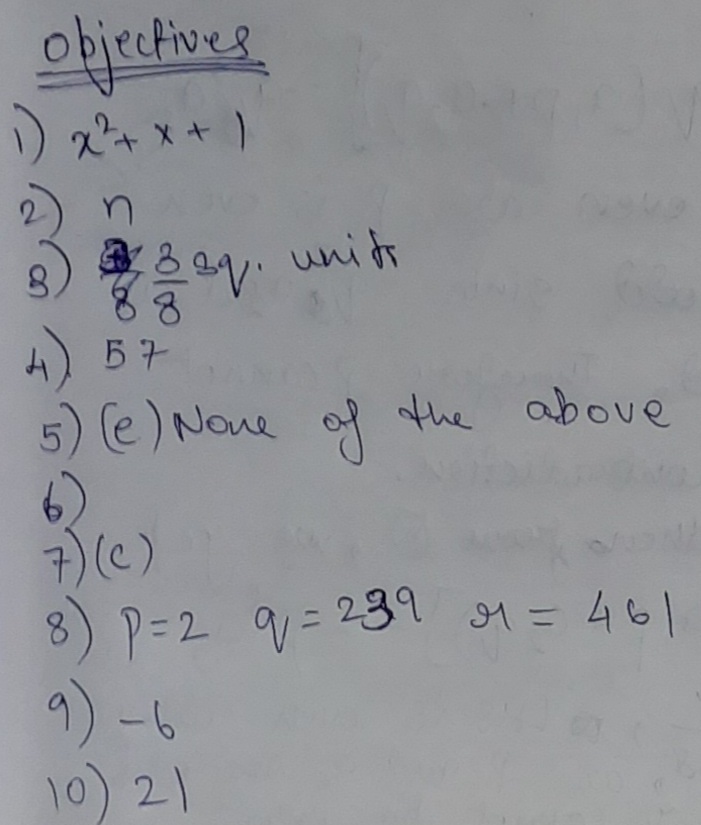 Objectives
1) x²+ x + 1
2) n
3) 3/8 sq. units
4) 57
5) (e) None of the above
6)
7) (c)
8) p=2 q=239 r=461
9) -6
10) 21